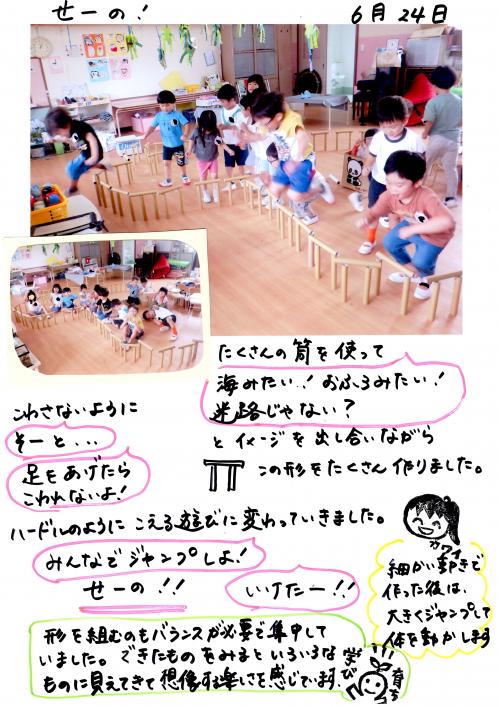 せーの!
6月24日
たくさんの筒を使って
海みたい!おふろみたい!
迷路じゃない?
とイメージを出し合いながら
この形をたくさん作りました。
こわさないように
そーと...
足をあげたら
こわれないよ!
ハードルのように こえる遊びに変わっていきました。
みんなでジャンプしよ!
せーの!!
いけたー!!
カワイ
細かい動きで
作った後は、
大きくジャンプして
体を動かします
形を組むのもバランスが必要で集中して
いました。できたものをみるといろいろな
ものに見えてきて想像する楽しさを感じています。
学び
育ち